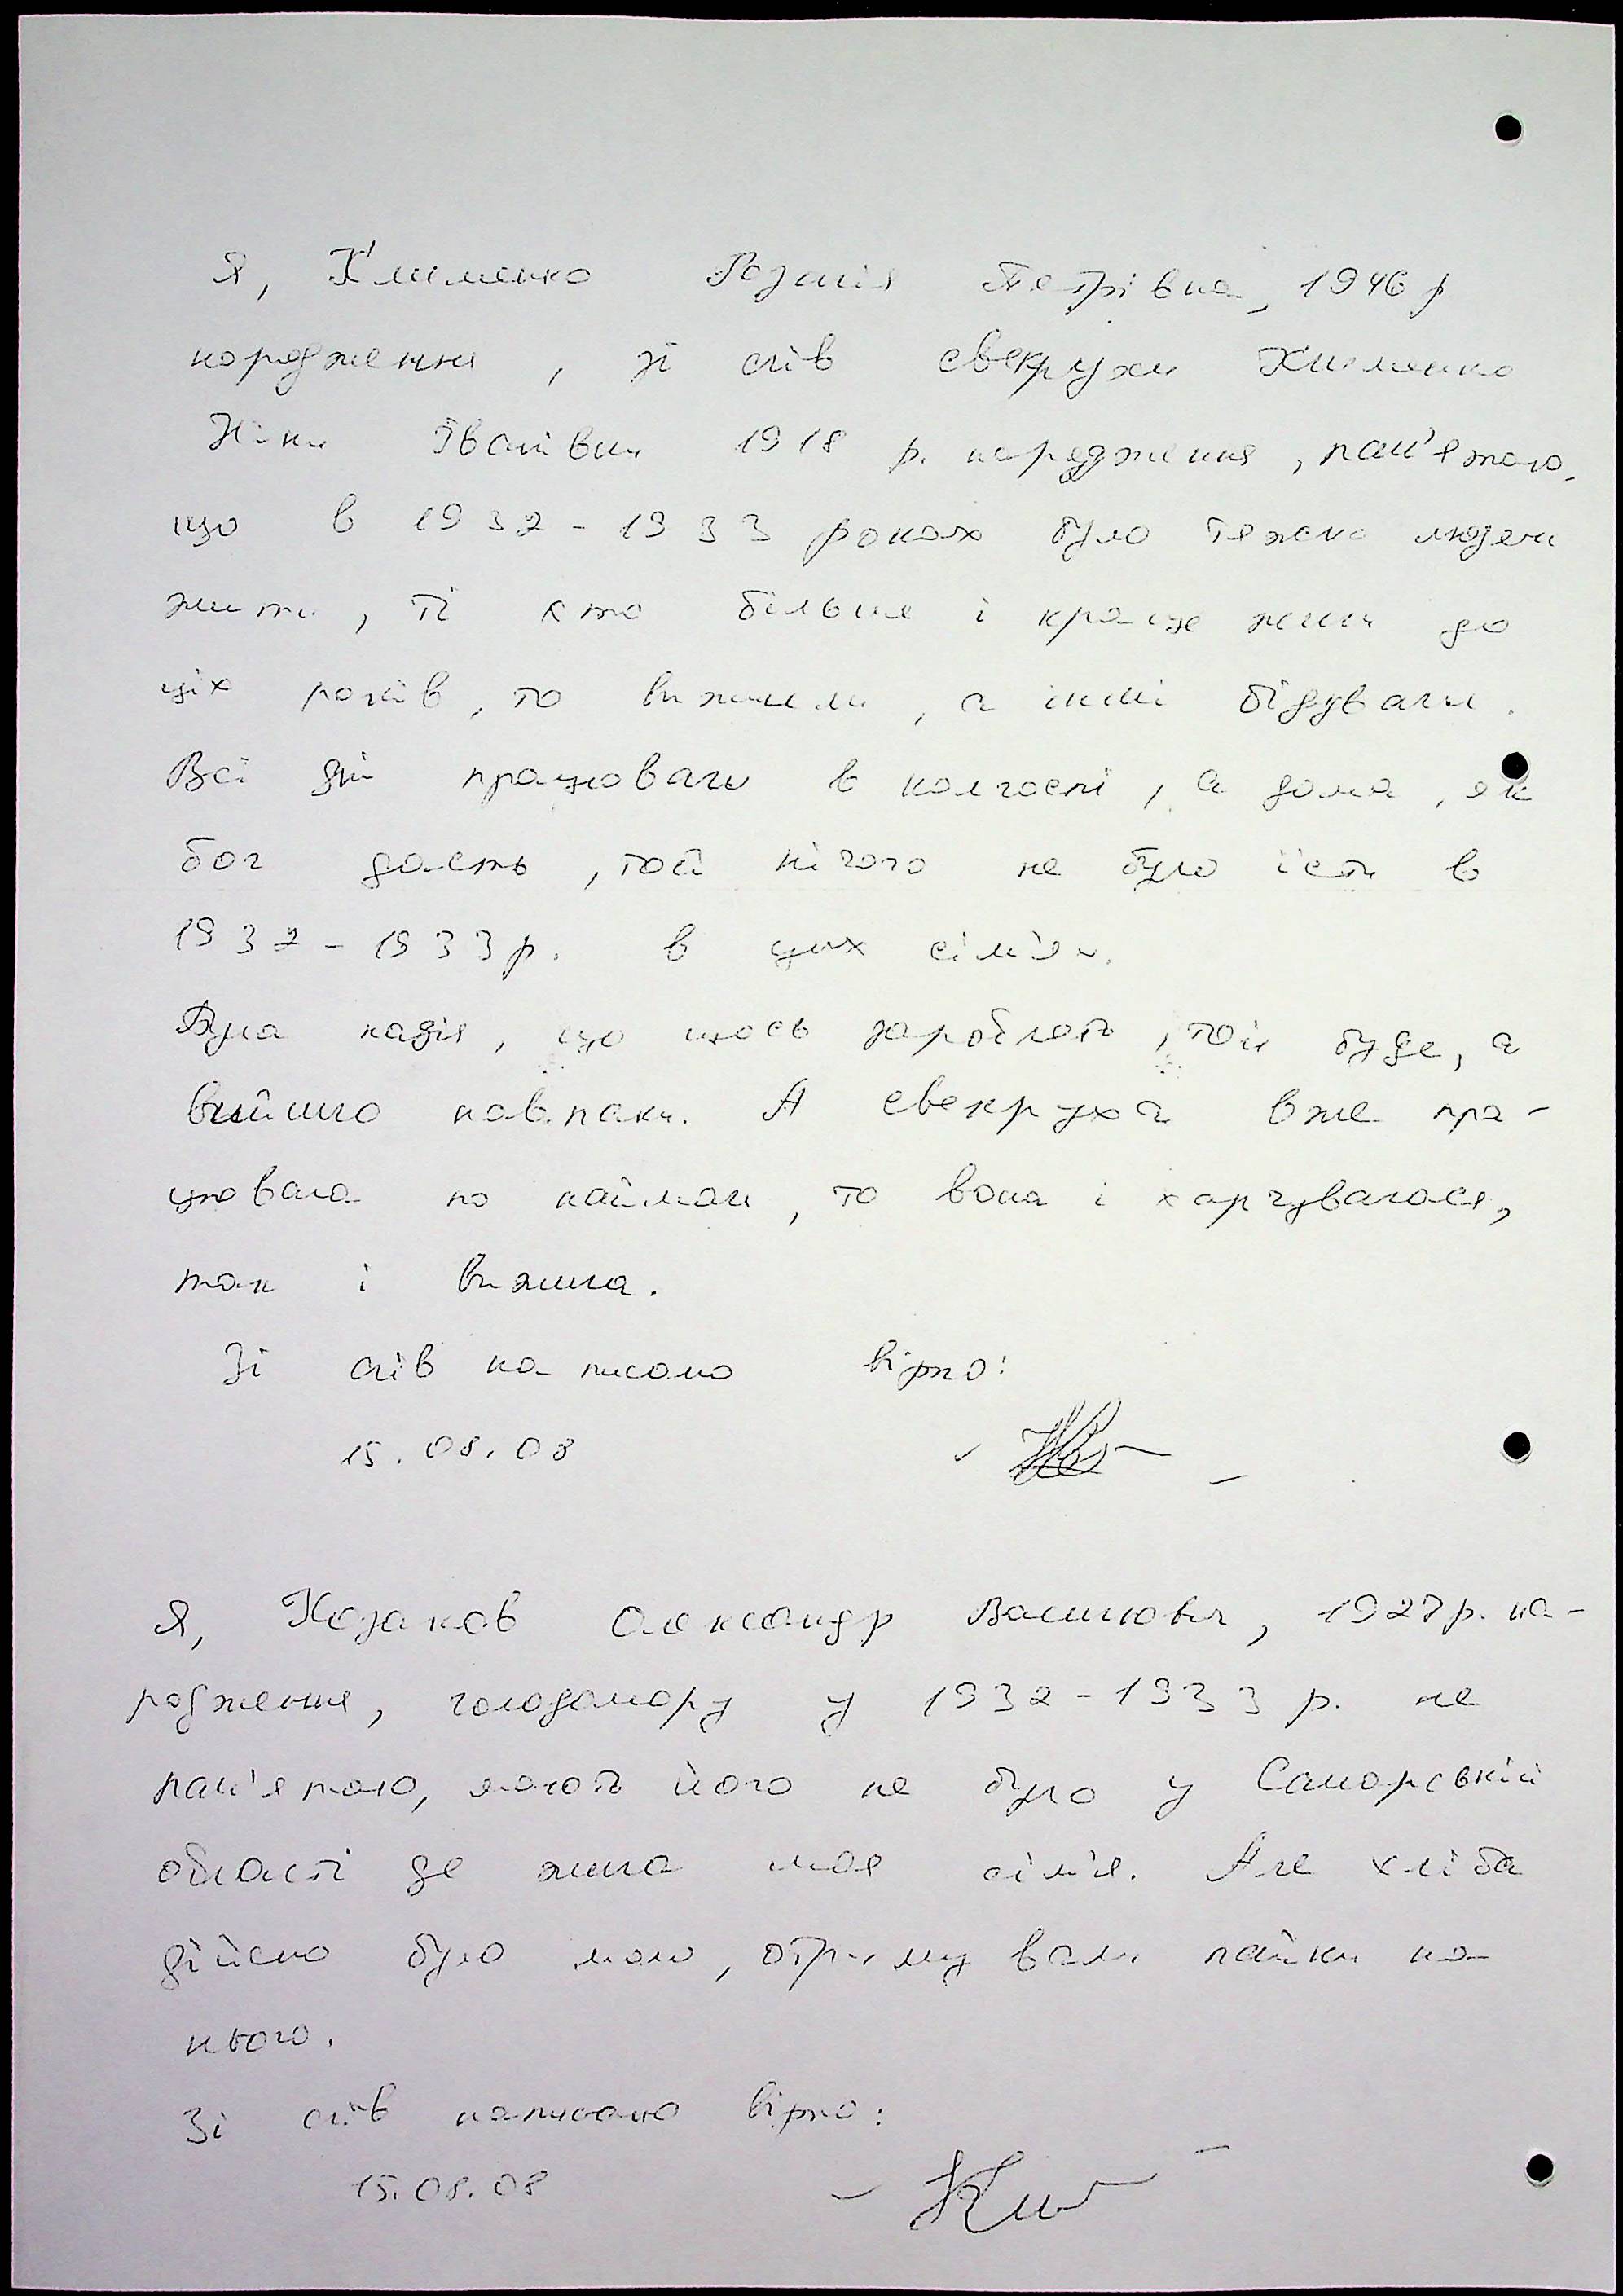 Я, Клименко Розалія Петрівна, 1946 р
народження, зі слів свекрухи Клименко
Ніни Іванівни 1918 р. народження, пам'ятаю,
що в 1932-1933 роках було тяжко людям
жити, ті кто більше і краще жили до
ціх років, то вижили, а інші бідували.
Всі дні працювали в колгоспі, а дома, як
бог дасть, той нічого не було їсти в
1932-1933 р. в цих сім'ях.
Була надія, що щось зароблять, той буде, а
вийшло навпаки. А свекруха вже пра-
цювала по наймах, то вона і харчувалася,
так і вижила.
Зі слів написано вірно:
15.08.08
Я, Козаков Олександр Васильович, 1927 р. на-
родження, голодомору у 1932-1933 р. не
пам'ятаю, мабть його не було у Самарській
області де жила моя сім'я. Але хліба
дійсно було мало, отримували пайки на
нього.
Зі слів написано вірно:
15.08.08